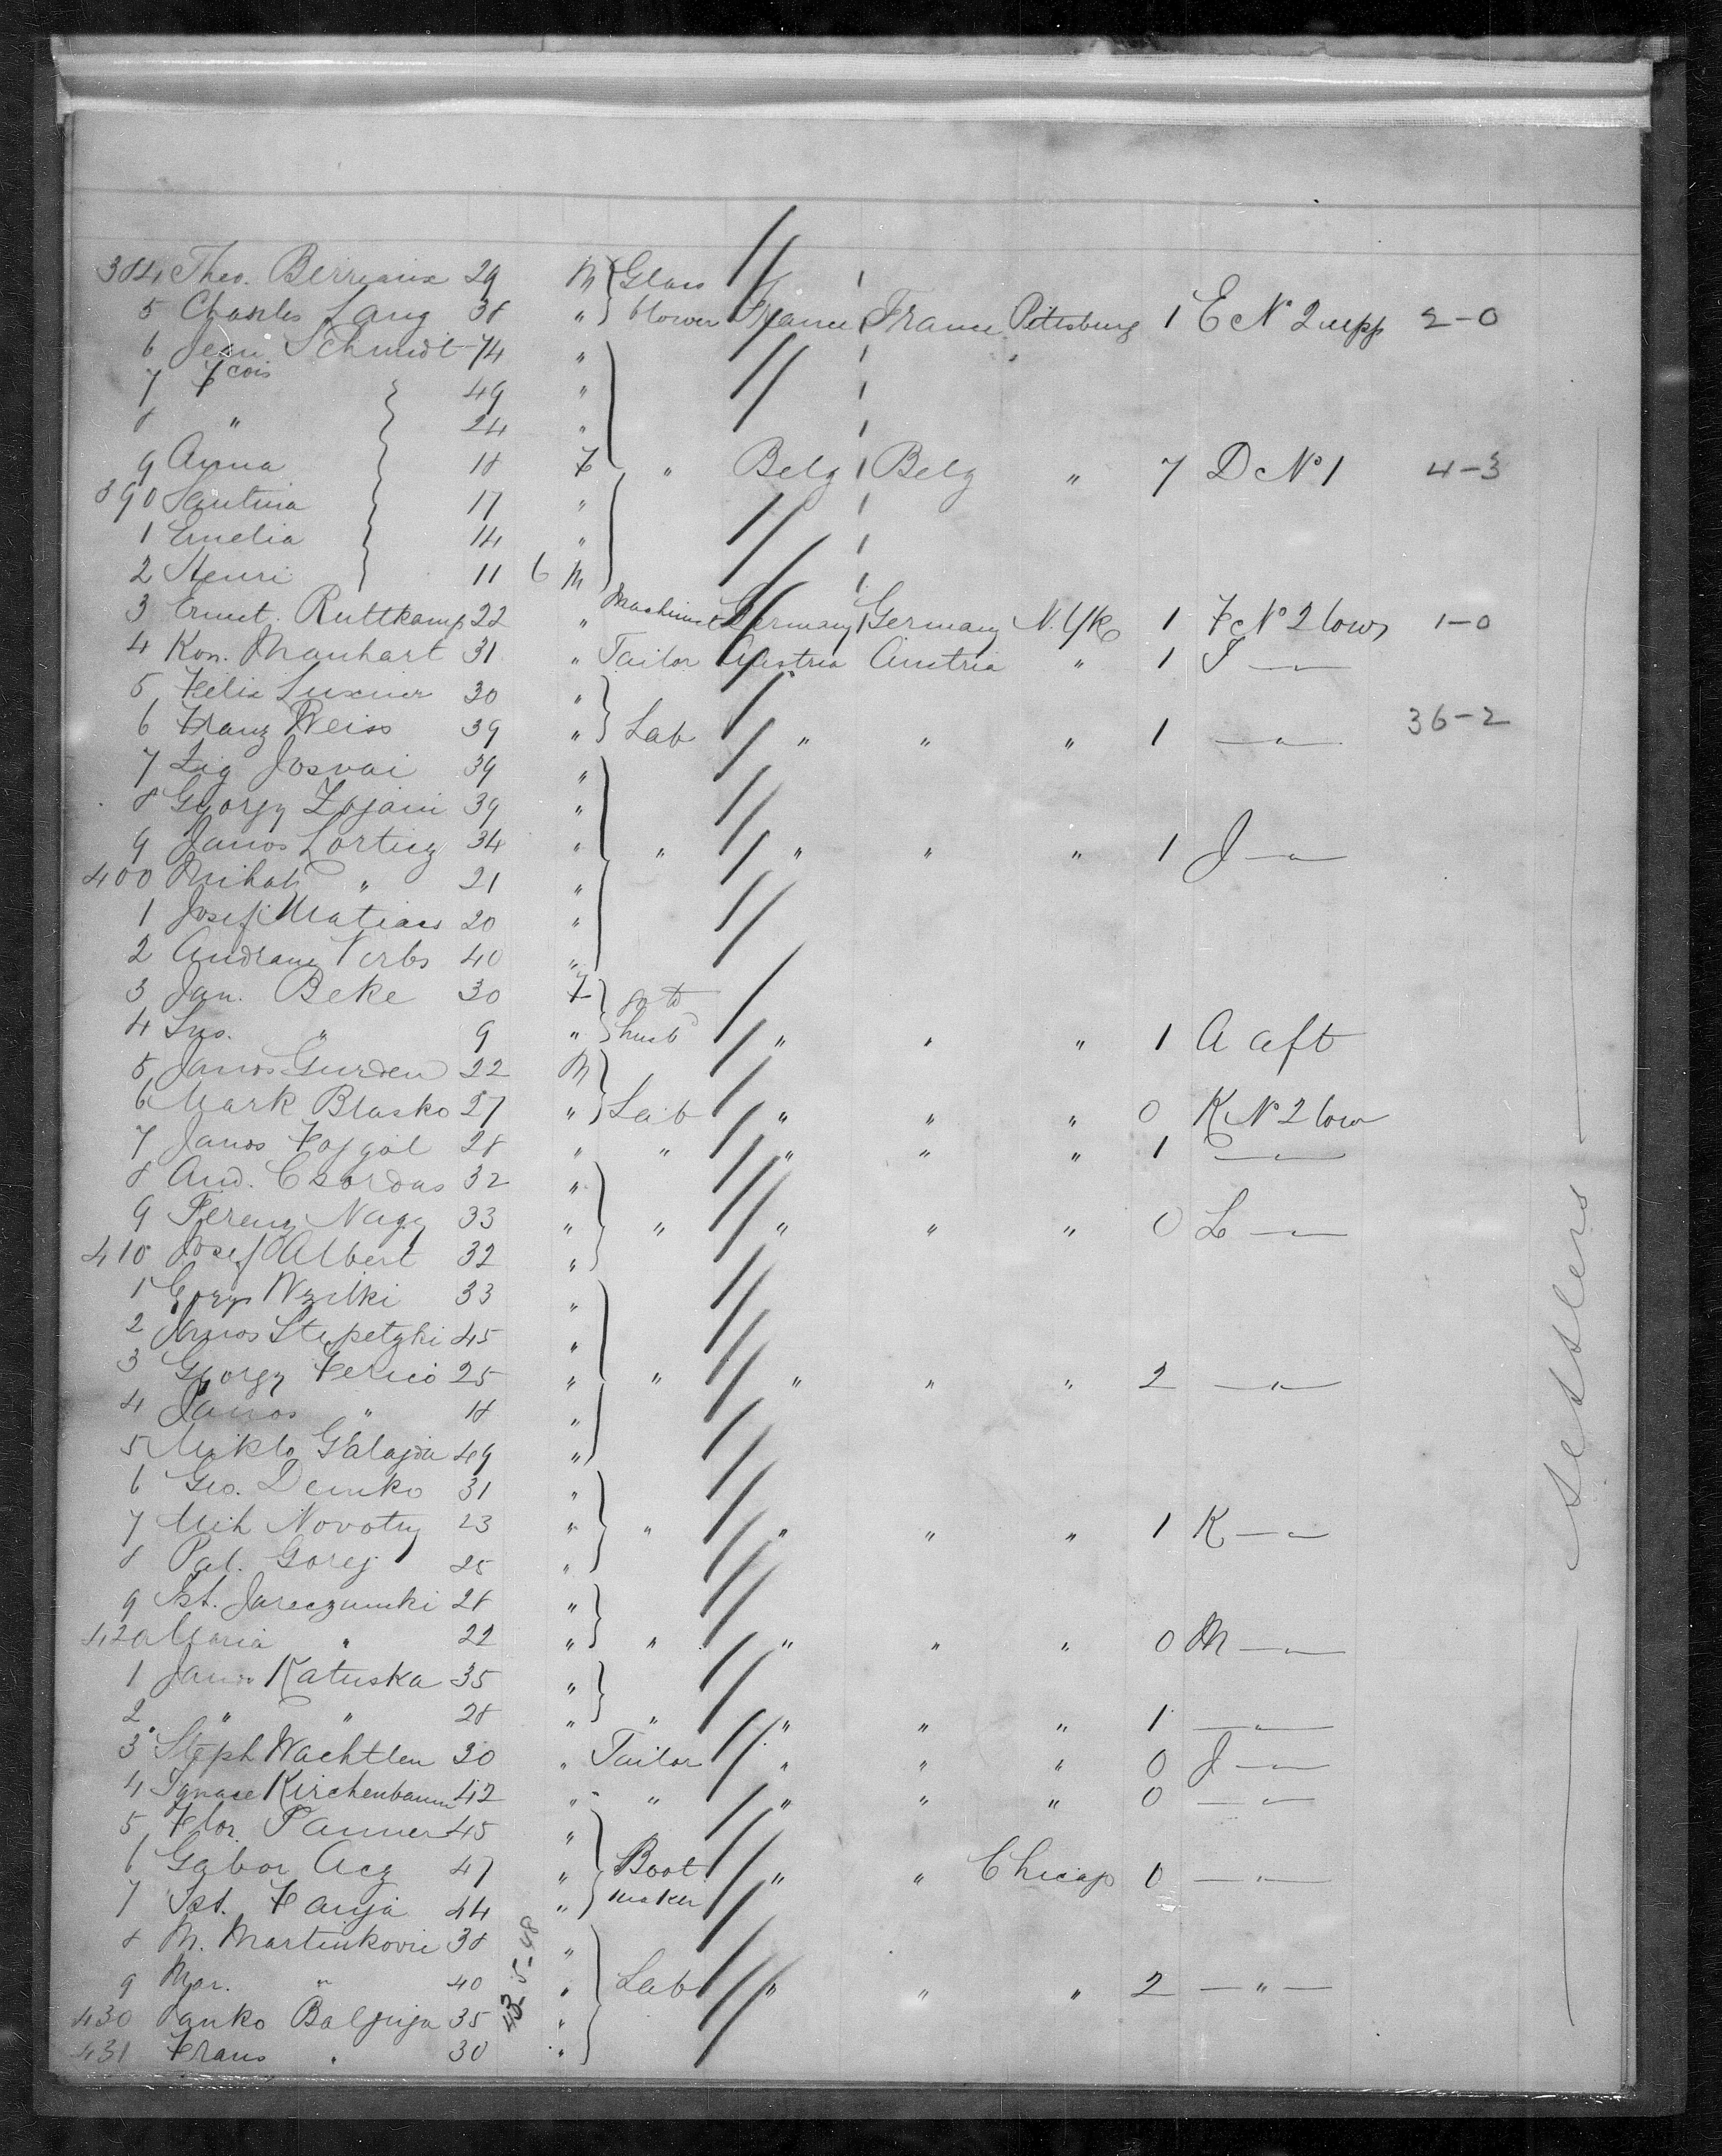 384 Theo. Berriaux 29 M Glass
5 Charles Lang 38 " blower France France Pittsburg 1 E No 2 upp 2-0
6 Jean Schmidt 74 "
7 Fcois 49 "
8 " 24 "
9 Anna 18 F " Belg Belg " 7 D No 1 4-3
390 17 "
1 Emelia 14 "
2 Henri 11 6 M
3 Ernst. Ruttkamp 22 " Machinist Germany Germany N. Yk 1 F No 2 low 1-0
4 Kon. Manhart 31 " Tailor Austria Austria " 1
5 Felix 30 "
6 Franz Weiss 39 " Lab " " " 1 —"— 36-2
7 Zig Josvai 39 "
8 Gyorgy 39 "
9 Janos 34 " " " " " 1 J —"—
400 Mihal " 21 "
1 Josef 20 "
2 40 "
3 Jan. Beke 30 F go to
4 " 9 " husb " " " 1 A aft
5 Janos Gurden 22 M
6 Mark Blasko 27 " Lab " " " 0 K No 2 low
7 Janos 28 " " " " " 1 —"—
8 And. Csordas 32 "
9 Ferenz Nagy 33 " " " " " 0 L —"—
410 Josef Albert 32 "
1 33 "
2 Janos 45 "
3 Gyorgy 25 " " " " " 2 —"—
4 Janos " 18 "
5 Miklo Galajda 49 "
6 Geo. Demko 31 "
7 Mih Novotny 23 " " " " " 1 K —"—
8 Pal. Gorej 25 "
9 Ist. 28 "
420 Maria " 22 " " " " " 0 M —"—
1 Janos Katuska 35 "
2 " " 28 " " " " " 1 —"—
3 Steph Wachtlen 30 " Tailor " " " 0 J —"—
4 Ignace Kirchenbaum 42 " " " " " 0 —"—
5 Flor. Panner 45 "
6 Gabor Acz 47 " Boot " " Chicago 0 —"—
7 Ist. 44 " maker
8 M. Martinkovic 38 "
9 Mar. " 40 " Lab " " " 2 —"—
430 Janko 35 "
431 Frans " 30 "